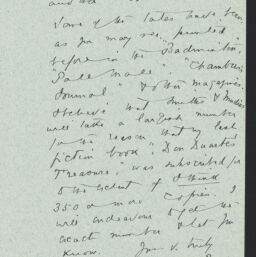 Some of the tales have been
as you may see, printed
before in the Badminton,
"Pall Mall", "Chambers's
Journal" & other magazines.
I believe that Smiths & Mudies
will take a large number
for the reason that my last
fiction book "Don Q's
Treasure", was subscribed for
to the extent of I think
350 or more copies. I
will endeavour to get the
exact number & let you
know. Yours v. truly